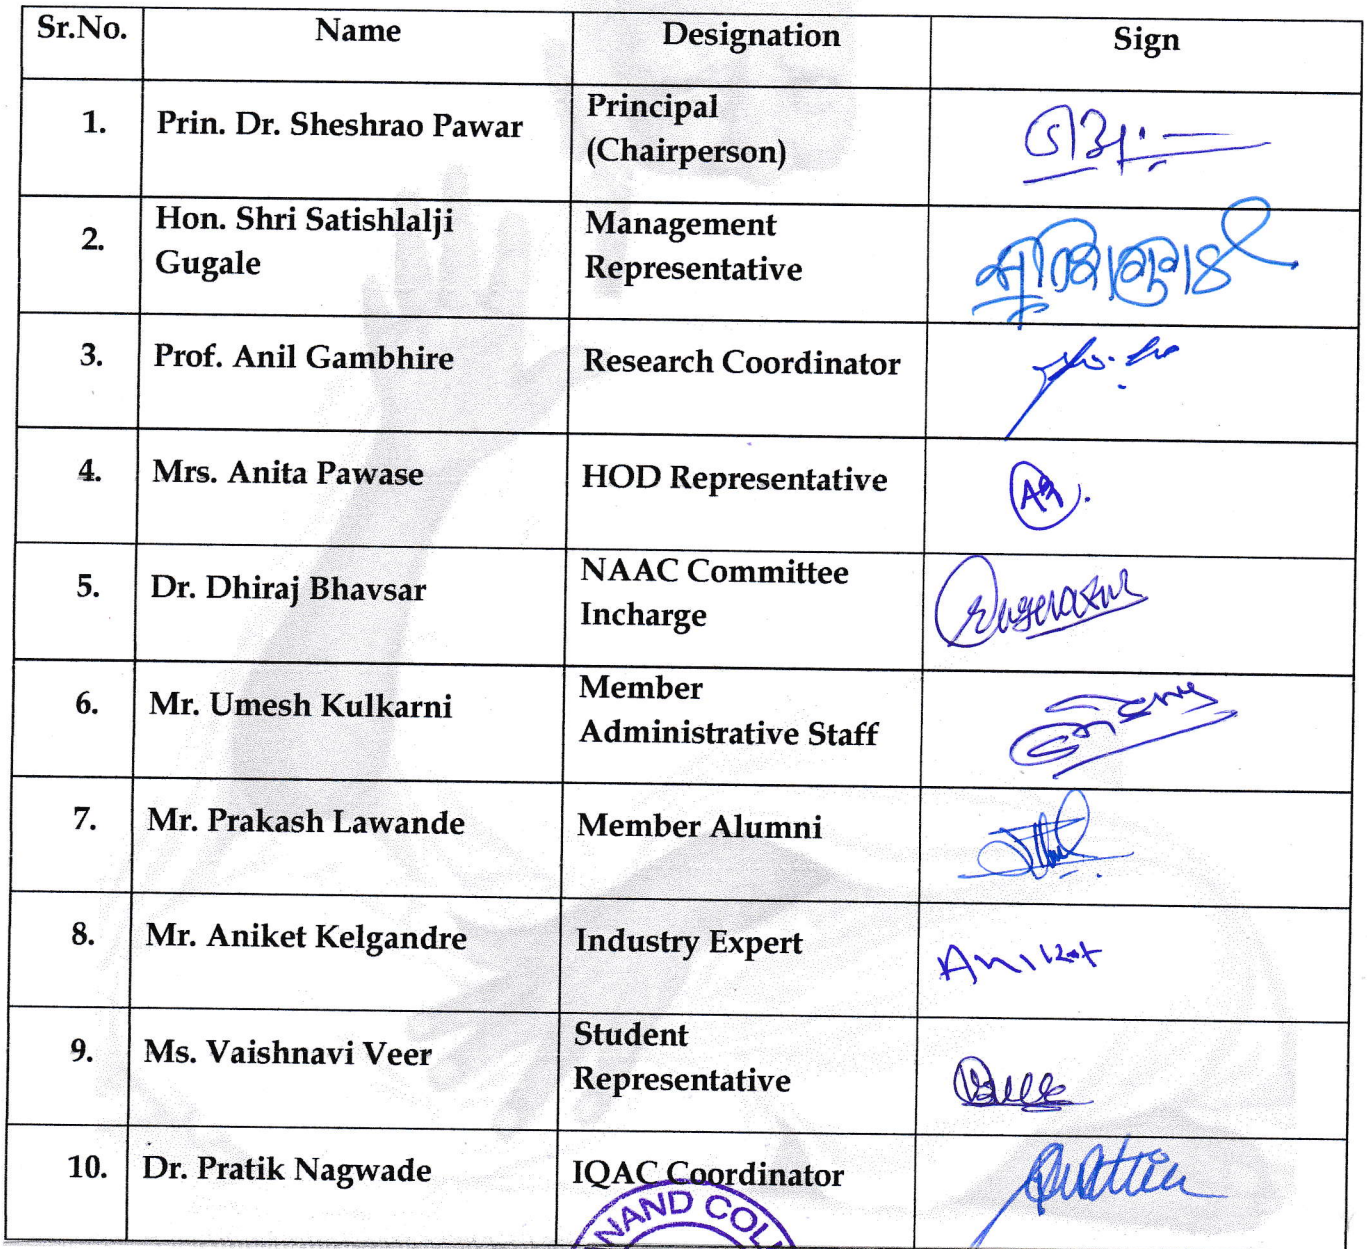 Sr.No. Name Designation Sign
1. Prin. Dr. Sheshrao Pawar Principal
(Chairperson)
2. Hon. Shri Satishlalji
Gugale Management
Representative
3. Prof. Anil Gambhire Research Coordinator
4. Mrs. Anita Pawase HOD Representative
5. Dr. Dhiraj Bhavsar NAAC Committee
Incharge
6. Mr. Umesh Kulkarni Member
Administrative Staff
7. Mr. Prakash Lawande Member Alumni
8. Mr. Aniket Kelgandre Industry Expert Aniket
9. Ms. Vaishnavi Veer Student
Representative
10. Dr. Pratik Nagwade IQAC Coordinator